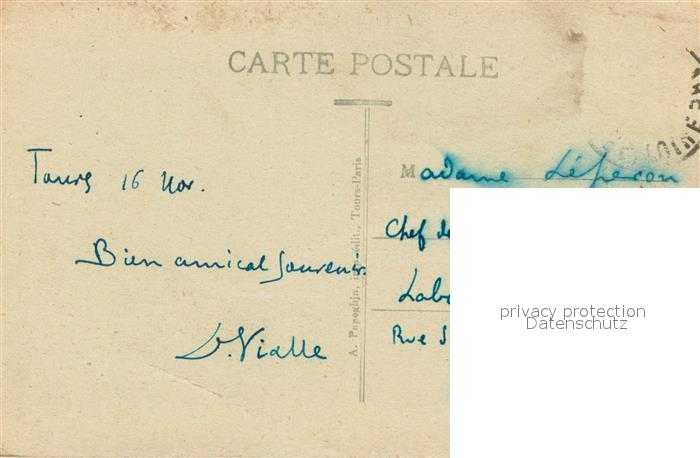 CARTE POSTALE
Tours 16 Nov.
Bien amical souvenir.
Vialle
A. Papeghin, imp.-édit., Tours-Paris
Madame
Chef de
Rue
privacy protection
Datenschutz